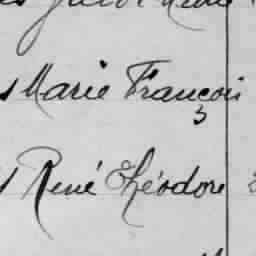 Marie François
René Théodore